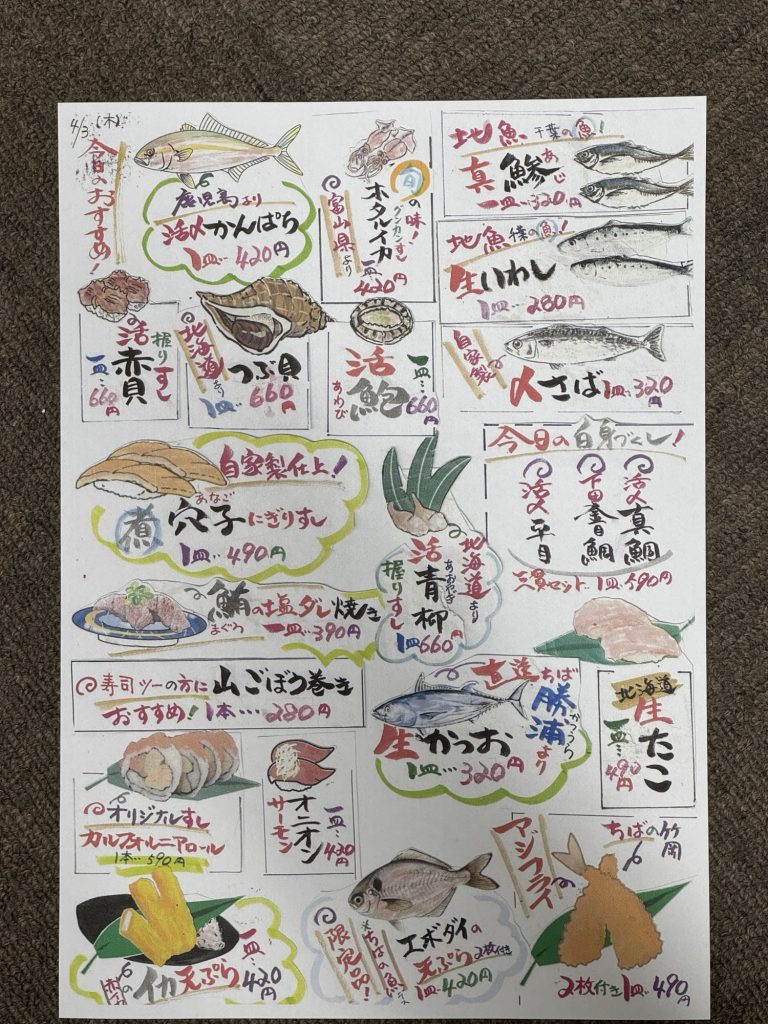 4/3(木)
今日のおすすめ!
鹿児島より
活〆かんぱち
1皿‥420円
旬の味!
グンカンすし
ホタルイカ
富山県より
一皿‥420円
地魚 千葉の魚!
あじ
真鯵
一皿‥320円
地魚 千葉の魚!
生いわし
1皿‥280円
握りすし
活赤貝
一皿‥660円
北海道より
つぶ貝
1皿‥660円
活鮑
あわび
一皿‥660円
自家製
〆さば 1皿‥320円
自家製仕上!
あなご
煮穴子にぎりすし
1皿‥490円
北海道より
あおやぎ
活青柳
握りすし
1皿660円
今日の白身づくし!
活〆真鯛
下田金目鯛
活〆平目
三貫セット‥1皿‥590円
鮪の塩ダレ焼き
まぐろ
一皿‥390円
寿司ツーの方に
おすすめ!
山ごぼう巻き
1本‥‥280円
直送ちば
かつうら
勝浦より
生かつお
1皿‥320円
北海道
生たこ
一皿‥490円
オリジナルすし
カルフォルニアロール
1本‥590円
オニオン
サーモン
一皿‥420円
イカ天ぷら
一皿‥420円
限定品!
ちばの魚
エボダイの
天ぷら2枚付き
1皿‥420円
ちばの竹岡
アジフライ
2枚付き1皿‥490円